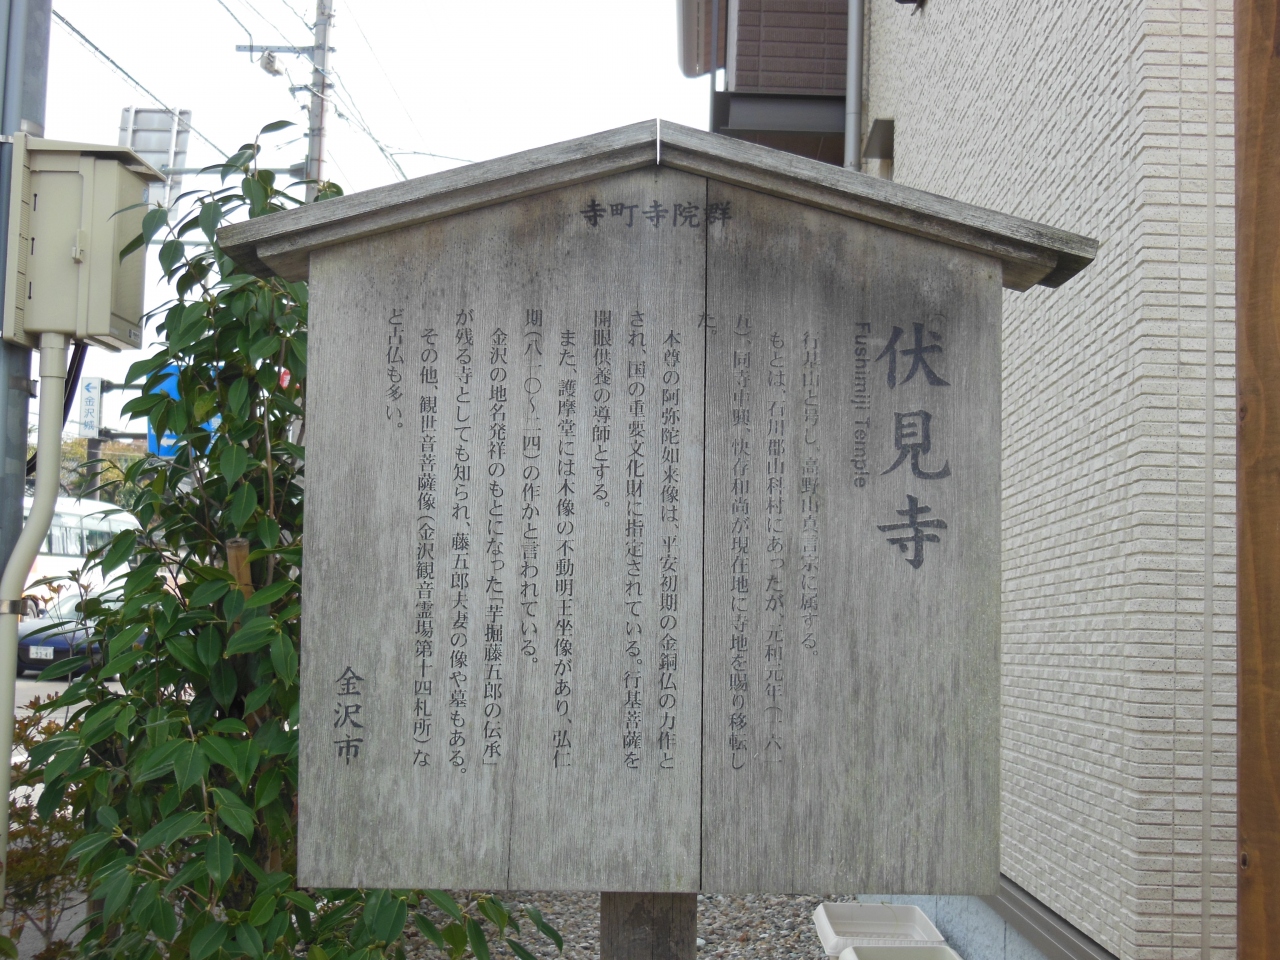 寺町寺院群
伏見寺
Fushimiji Temple
行基山と号し、高野山真言宗に属する。
もとは、石川郡山科村にあったが、元和元年(一六一
五)、同寺中興、快存和尚が現在地に寺地を賜り移転し
た。
本尊の阿弥陀如来像は、平安初期の金銅仏の力作と
され、国の重要文化財に指定されている。行基菩薩を
開眼供養の導師とする。
また、護摩堂には木像の不動明王坐像があり、弘仁
期(八一〇〜二四)の作かと言われている。
金沢の地名発祥のもとになった「芋掘藤五郎の伝承」
が残る寺としても知られ、藤五郎夫妻の像や墓もある。
その他、観世音菩薩像(金沢観音霊場第十四札所)な
ど古仏も多い。
金沢市
←金沢城